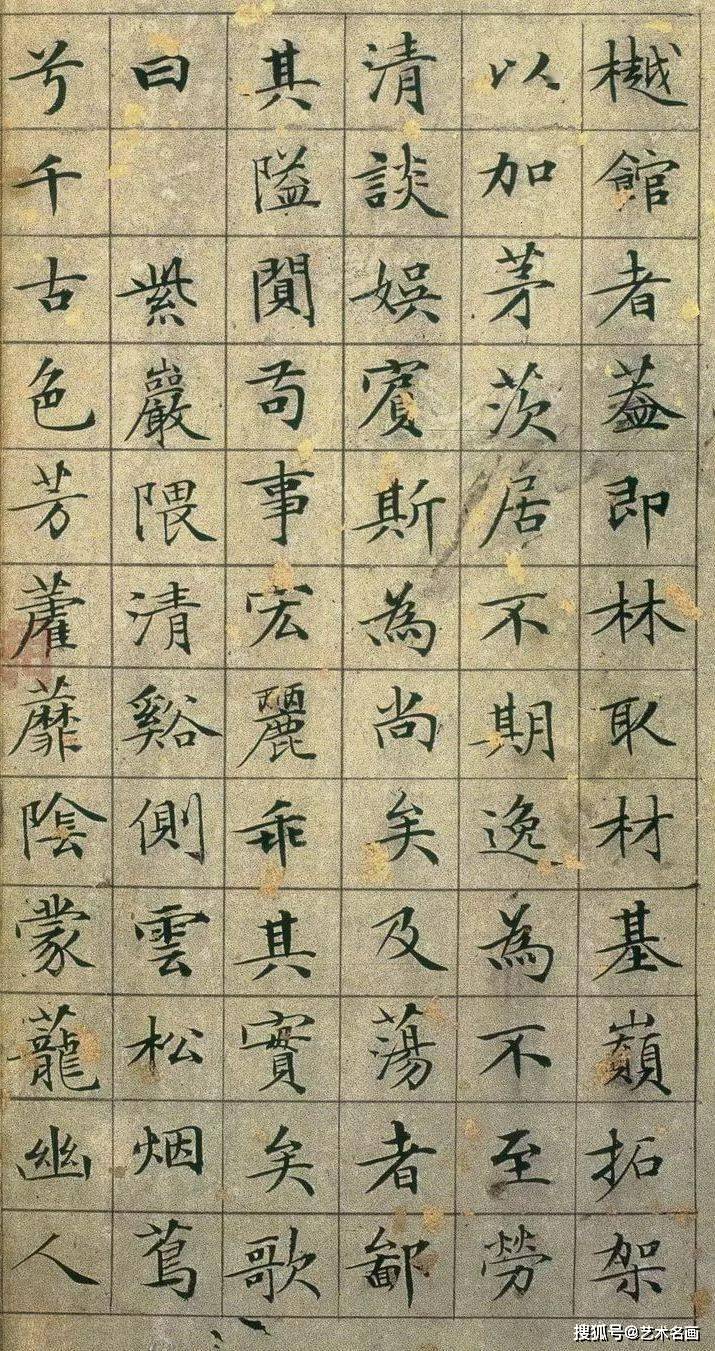 樾館者蓋即林取材基巔拓架
以加茅茨居不期逸為不至勞
清談娛賓斯為尚矣及蕩者鄙
其隘闃苟事宏麗乖其實矣歌
曰 紫巖隈清谿側雲松烟蔦
兮千古色芳藿蘼陰蒙蘢幽人
搜狐号@艺术名画